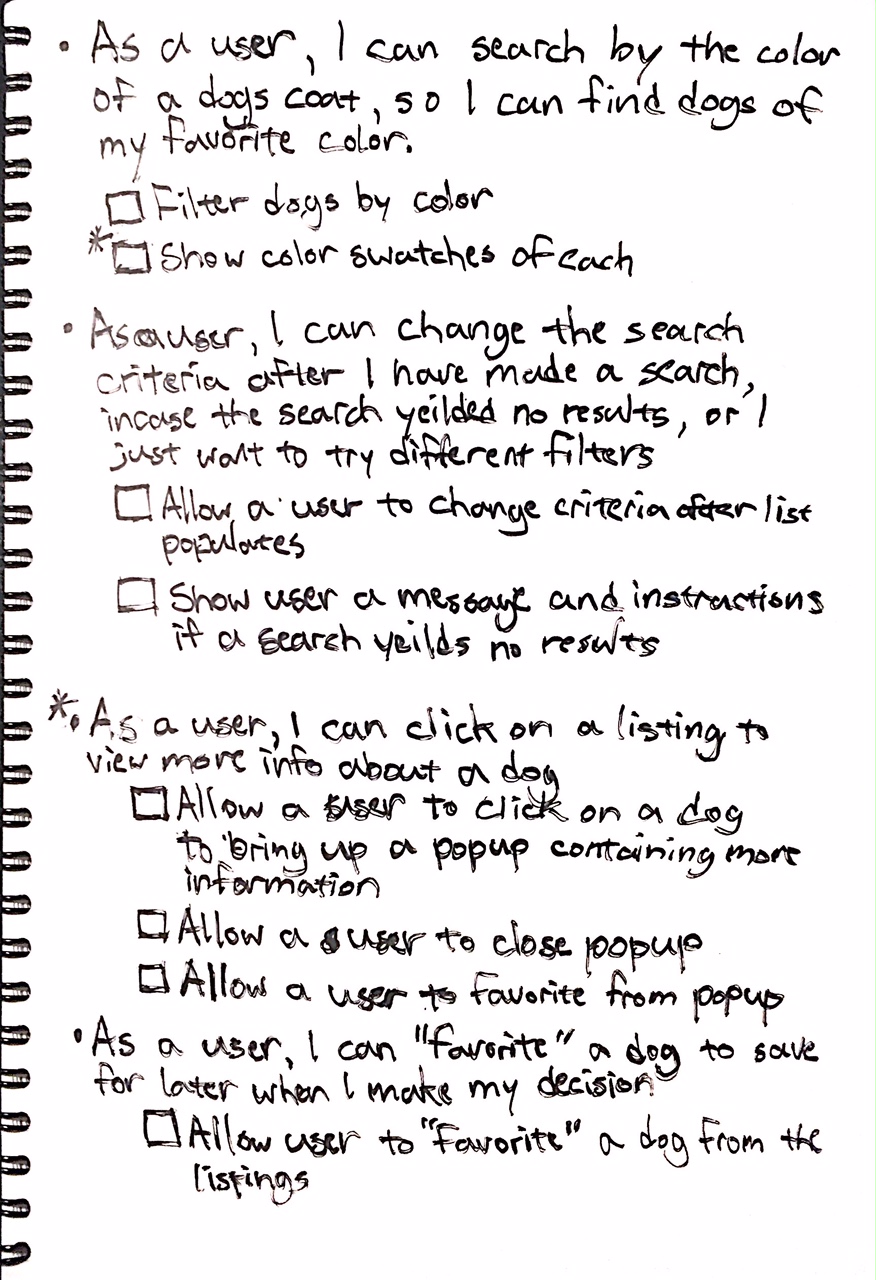 • As a user, I can search by the color
of a dogs coat, so I can find dogs of
my favorite color.
☐ Filter dogs by color
*☐ Show color swatches of each
• As a user, I can change the search
criteria after I have made a search,
incase the search yeilded no results, or I
just want to try different filters
☐ Allow a user to change criteria after list
populates
☐ Show user a message and instructions
if a search yeilds no results
*• As a user, I can click on a listing to
view more info about a dog
☐ Allow a user to click on a dog
to bring up a popup containing more
information
☐ Allow a user to close popup
☐ Allow a user to favorite from popup
• As a user, I can "favorite" a dog to save
for later when I make my decision
☐ Allow user to "favorite" a dog from the
listings